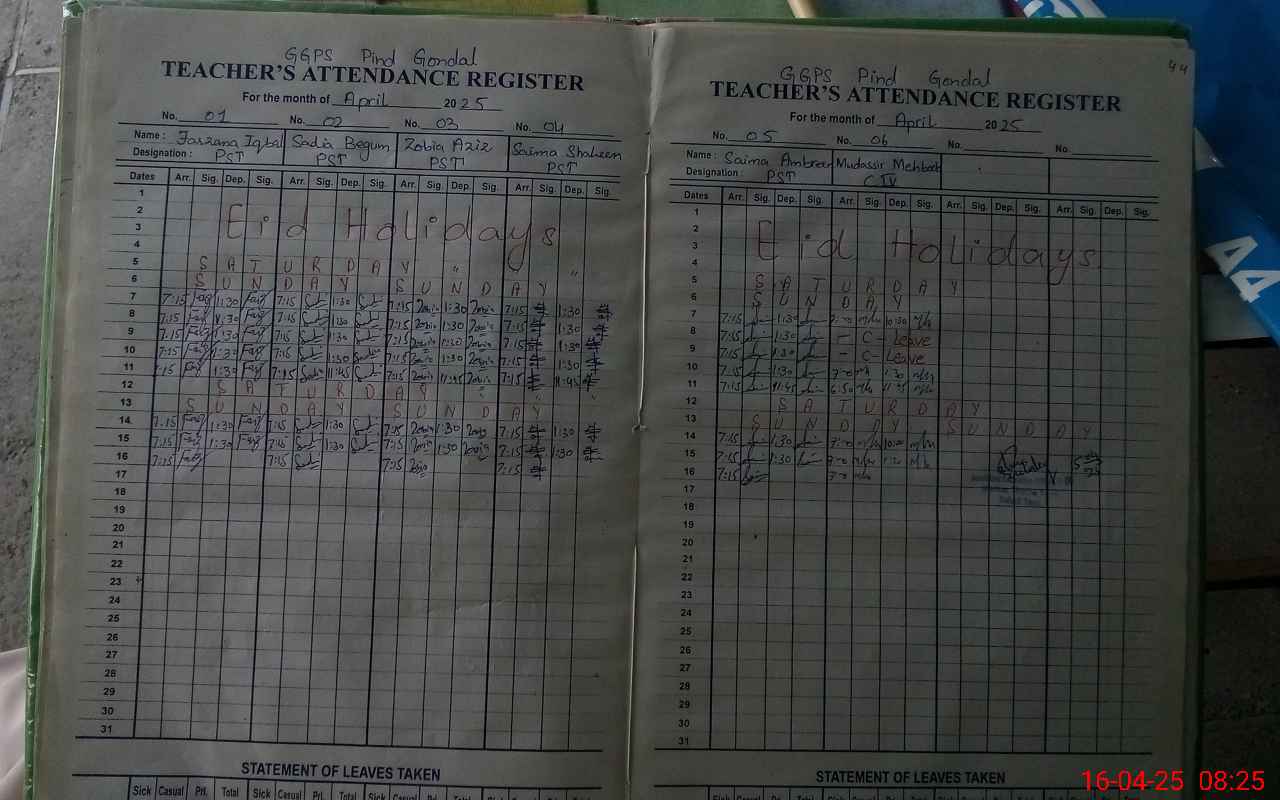 GGPS Pind Gondal
TEACHER'S ATTENDANCE REGISTER
For the month of April 2025
No. 01 No. 02 No. 03 No. 04
Name : Farzana Iqbal Sadia Begum Zobia Aziz Saima Shaheen
Designation : PST PST PST PST
Dates Arr. Sig. Dep. Sig. Arr. Sig. Dep. Sig. Arr. Sig. Dep. Sig. Arr. Sig. Dep. Sig.
1
2
3 Eid Holidays
4
5 SATURDAY " "
6 SUNDAY SUNDAY
7 7:15 1:30 7:15 1:30 7:15 Zobia 1:30 Zobia 7:15 1:30
8 7:15 1:30 7:15 1:30 7:15 Zobia 1:30 Zobia 7:15 1:30
9 7:15 1:30 7:15 1:30 7:15 Zobia 1:30 Zobia 7:15 1:30
10 7:15 1:30 7:15 1:30 7:15 Zobia 1:30 Zobia 7:15 1:30
11 7:15 1:30 7:15 11:45 7:15 Zobia 11:45 Zobia 7:15 11:45
12 SATURDAY " "
13 SUNDAY SUNDAY
14 7:15 1:30 7:15 1:30 7:15 Zobia 1:30 Zobia 7:15 1:30
15 7:15 1:30 7:15 1:30 7:15 Zobia 1:30 Zobia 7:15 1:30
16 7:15 7:15 7:15 Zobia 7:15
17
18
19
20
21
22
23
24
25
26
27
28
29
30
31
STATEMENT OF LEAVES TAKEN
Sick Casual Pri. Total Sick Casual Pri. Total Sick Casual Pri. Total Sick Casual Pri. Total
44
GGPS Pind Gondal
TEACHER'S ATTENDANCE REGISTER
For the month of April 2025
No. 05 No. 06 No. No.
Name : Saima Ambreen Mudassir Mehboob
Designation : PST C IV
Dates Arr. Sig. Dep. Sig. Arr. Sig. Dep. Sig. Arr. Sig. Dep. Sig. Arr. Sig. Dep. Sig.
1
2
3 Eid Holidays
4
5 SATURDAY
6 SUNDAY
7 7:15 1:30 7:00 10:30
8 7:15 1:30 - C - Leave
9 7:15 1:30 - C - Leave
10 7:15 1:30 7:00 1:30
11 7:15 11:45 6:50 11:45
12 SATURDAY
13 SUNDAY SUNDAY
14 7:15 1:30 7:00
15 7:15 1:30 7:00
16 7:15 7:0
17
18
19
20
21
22
23
24
25
26
27
28
29
30
31
STATEMENT OF LEAVES TAKEN
A4
16-04-25 08:25